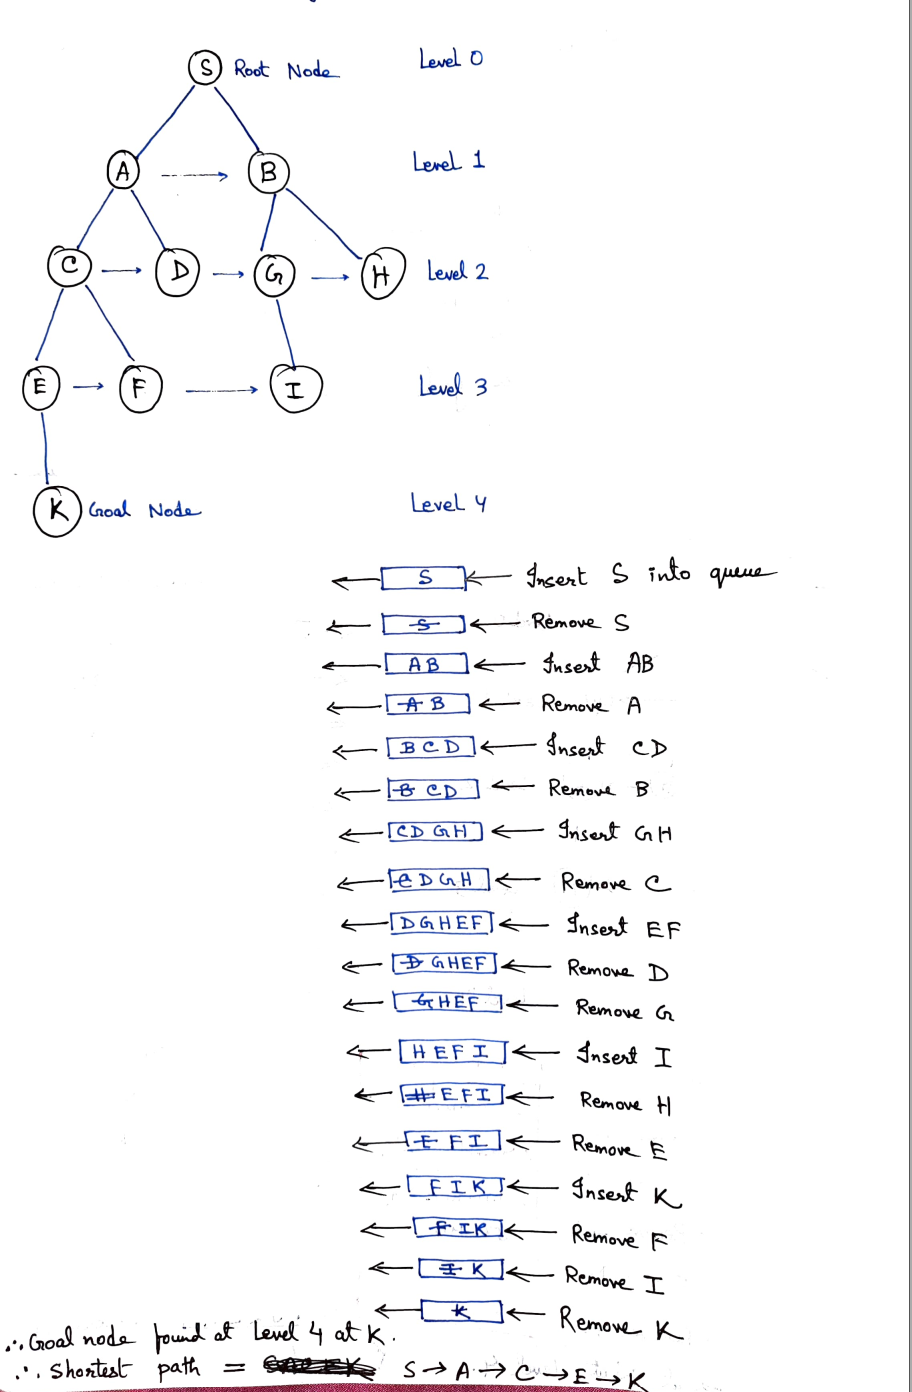 S Root Node Level 0
A B Level 1
C D G H Level 2
E F I Level 3
K Goal Node Level 4
S Insert S into queue
S Remove S
AB Insert AB
AB Remove A
BCD Insert CD
BCD Remove B
CDGH Insert GH
CDGH Remove C
DGHEF Insert EF
DGHEF Remove D
GHEF Remove G
HEFI Insert I
HEFI Remove H
EFI Remove E
FIK Insert K
FIK Remove F
IK Remove I
K Remove K
∴ Goal node found at Level 4 at K.
∴ Shortest path = S → A → C → E → K